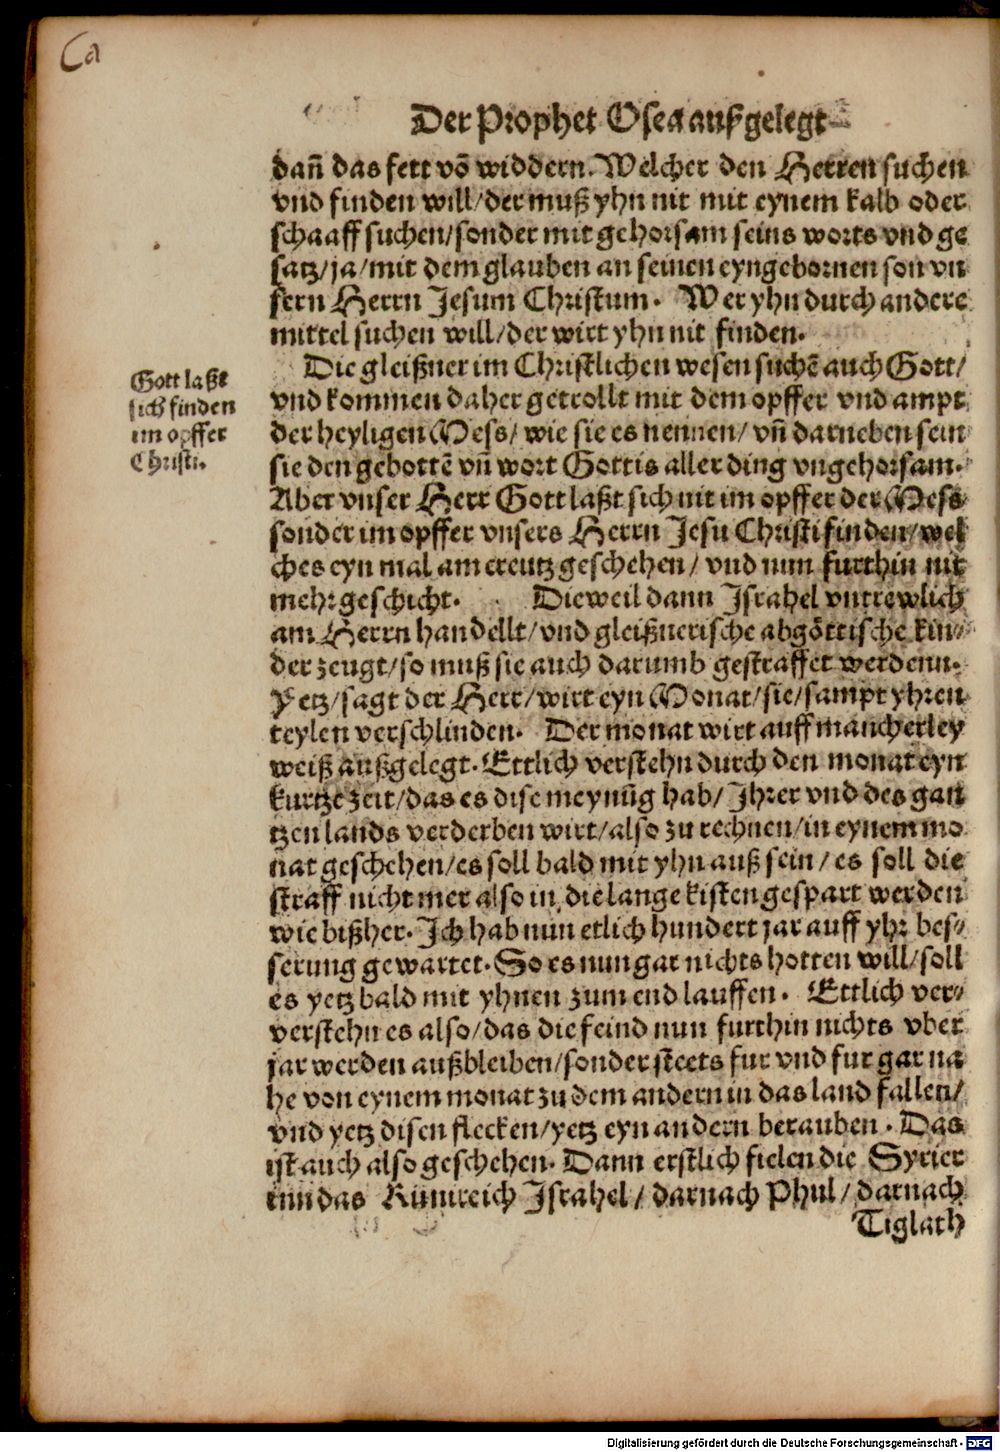 Ca
Der Prophet Osea außgelegt
dañ das fett võ widdern. Welcher den Herren suchen
vnd finden will/der muß yhn nit mit eynem kalb oder
schaaff suchen/sonder mit gehorsam seins worts vnd ge
satz/ja/mit dem glauben an seinen eyngebornen son vn
sern Herrn Jesum Christum. Wer yhn durch andere
mittel suchen will/der wirt yhn nit finden.
Die gleißner im Christlichen wesen suchẽ auch Gott/
vnd kommen daher getrollt mit dem opffer vnd ampt
der heyligen Mess/ wie sie es nennen/ vñ darneben sein
sie den gebottẽ vñ wort Gottis aller ding vngehorsam.
Aber vnser Herr Gott laßt sich nit im opffer der Mess
sonder im opffer vnsers Herrn Jesu Christi finden/wel
ches eyn mal am creutz geschehen/ vnd nun furthin nit
mehr geschicht. Dieweil dann Israhel vntrewlich
am Herrn handellt/vnd gleißnerische abgöttische kin⸗
der zeugt/so muß sie auch darumb gestraffet werdenn.
Yetz/sagt der Herr/wirt eyn Monat/sie/sampt yhren
teylen verschlinden. Der monat wirt auff mancherley
weiß außgelegt. Ettlich verstehn durch den monat eyn
kurtze zeit/das es dise meynũg hab/ Jhrer vnd des gan
tzen lands verderben wirt/also zu rechnen/in eynem mo
nat geschehen/es soll bald mit yhn auß sein/ es soll die
straff nicht mer also in die lange kisten gespart werden
wie bißher. Jch hab nun etlich hundert jar auff yhr bes⸗
serung gewartet. So es nun gar nichts hotten will/soll
es yetz bald mit yhnen zum end lauffen. Ettlich ver⸗
verstehn es also/das die feind nun furthin nichts vber
jar werden außbleiben/sonder steets fur vnd fur gar na
he von eynem monat zu dem andern in das land fallen/
vnd yetz disen flecken/yetz eyn andern berauben. Das
ist auch also geschehen. Dann erstlich fielen die Syrier
inn das Künreich Israhel/ darnach Phul/ darnach
Tiglath
Gott laßt
sich finden
im opffer
Christi.
Digitalisierung gefördert durch die Deutsche Forschungsgemeinschaft - DFG